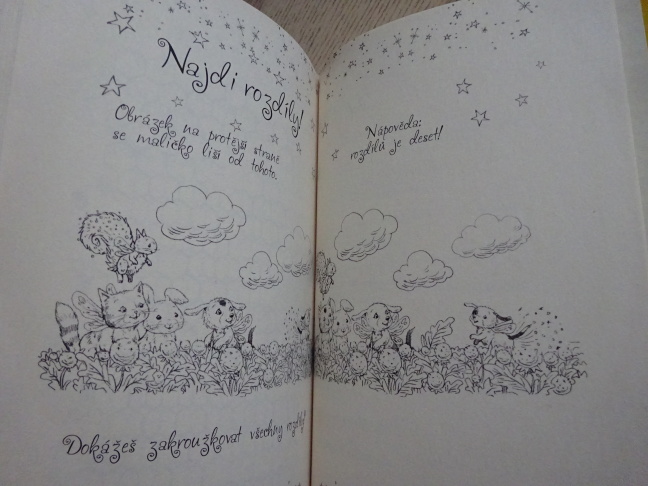 Najdi rozdíly!
Obrázek na protější straně
se maličko liší od tohoto.
Dokážeš zakroužkovat všechny rozdíly?
Nápověda:
rozdílů je deset!